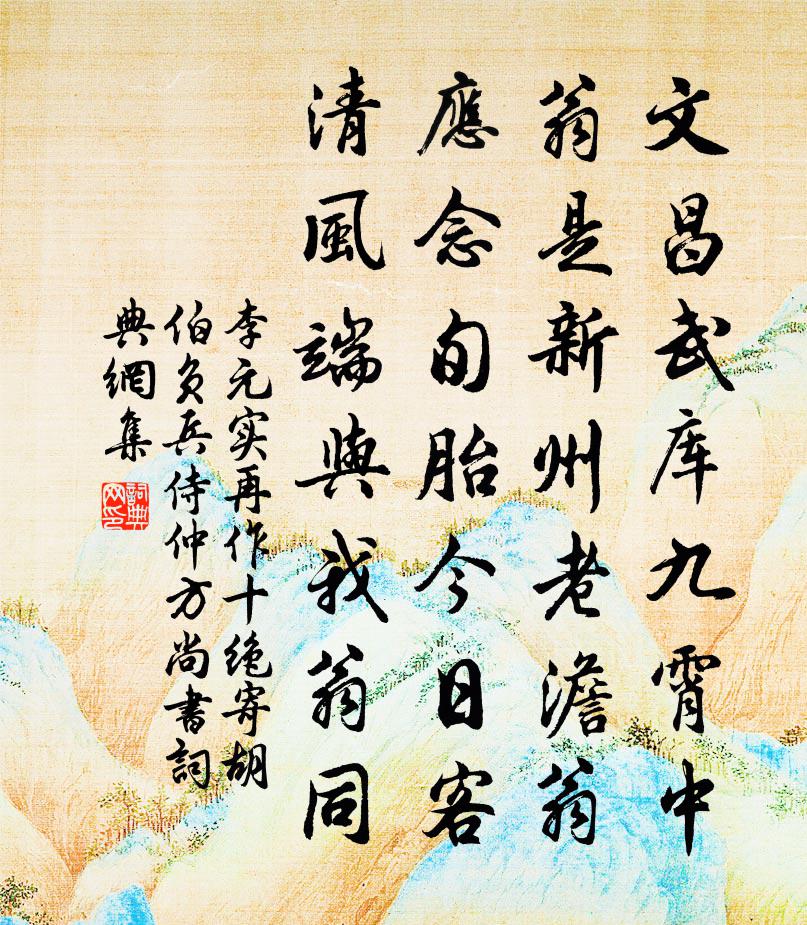 文昌武库九霄中
翁是新州老澹翁
應念旬胎今日客
清風端與我翁同
李元实再作十绝寄胡
伯负兵侍仲方尚書詞
典網集
詞典
网印